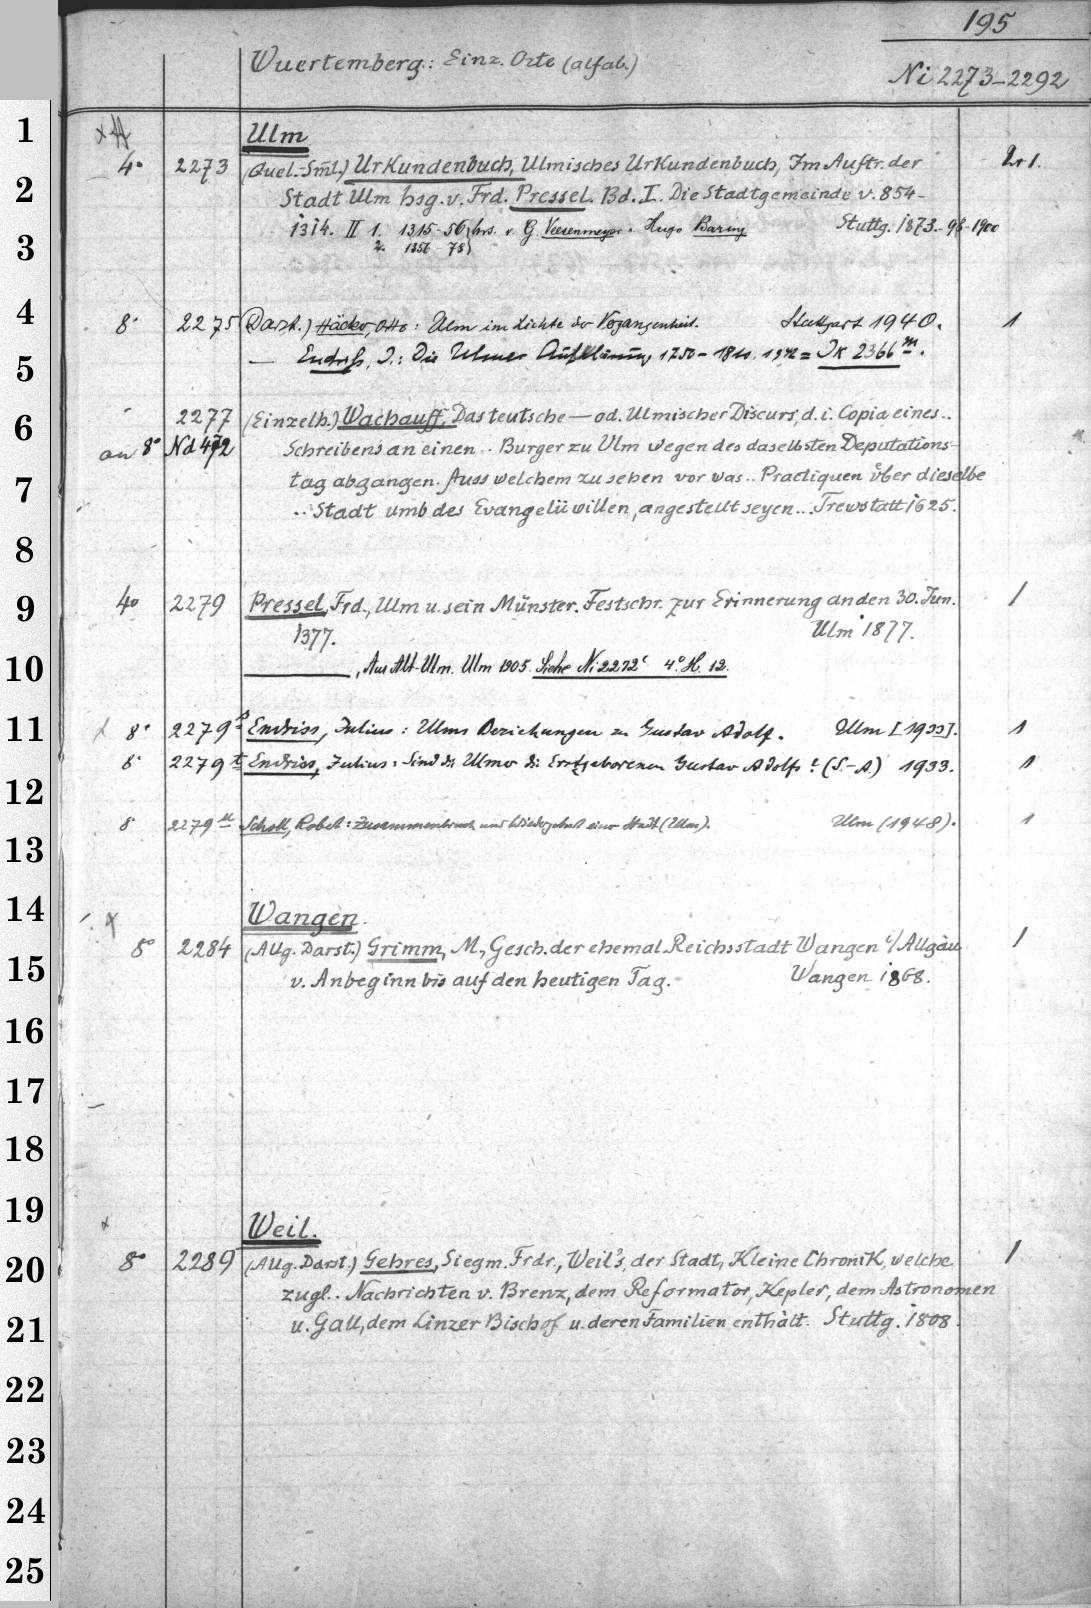 195
Wuertemberg: Einz. Orte (alfab.)
Ni 2273–2292
1
Ulm
4° 2273 (Quel.-Sml.) Urkundenbuch, Ulmisches Urkundenbuch, Im Auftr. der 2+1.
2
Stadt Ulm hsg. v. Frd. Pressel. Bd. I. Die Stadtgemeinde v. 854–
1314. II 1. 1315–56 hrs. v G. Veesenmeyer. Hugo Bazing Stuttg. 1873.–98–1900
3
2. 1356–78
4
8° 2275 (Darst.) Häcker, Otto: Ulm im Lichte der Vergangenheit. Stuttgart 1940. 1
— Endriß, J.: Die Ulmer Aufklärung 1750–1810. 1942 = Jk 2366 m.
5
6
2277 (Einzelh.) Wachauff, Das teutsche — od. Ulmischer Discurs, d. i. Copia eines..
an 8° Nd 472 Schreibens an einen.. Burger zu Ulm wegen des daselbsten Deputations-
7
tag abgangen. Auss welchem zu sehen vor was.. Practiquen über dieselbe
.. Stadt umb des Evangelii willen, angestellt seyen... Trewstatt 1625.
8
9
4° 2279 Pressel, Frd., Ulm u. sein Münster. Festschr. zur Erinnerung an den 30. Jun. 1
1377. Ulm 1877.
10
———, Aus Alt-Ulm. Ulm 1905. Siehe Ni 2272c 4° H. 12.
11
8° 2279 s Endriss, Julius: Ulms Beziehungen zu Gustav Adolf. Ulm [1933]. 1
8° 2279 t Endriss, Julius: Sind die Ulmer die Erstgeborenen Gustav Adolfs? (S.-A.) 1933. 1
12
8° 2279 u Scholl, Robert: Zusammenbruch und Wiedergeburt einer Stadt (Ulm). Ulm (1948). 1
13
14
Wangen.
8° 2284 (Allg. Darst.) Grimm, M., Gesch. der ehemal. Reichsstadt Wangen i/Allgäu 1
15
v. Anbeginn bis auf den heutigen Tag.- Wangen 1868.
16
17
18
19
Weil.
8° 2289 (Allg. Darst.) Gehres, Siegm. Frdr., Weil's, der Stadt, Kleine Chronik, welche 1
20
zugl.. Nachrichten v. Brenz, dem Reformator, Kepler, dem Astronomen
21
u. Gall, dem Linzer Bischof u. deren Familien enthält. Stuttg. 1808.
22
23
24
25